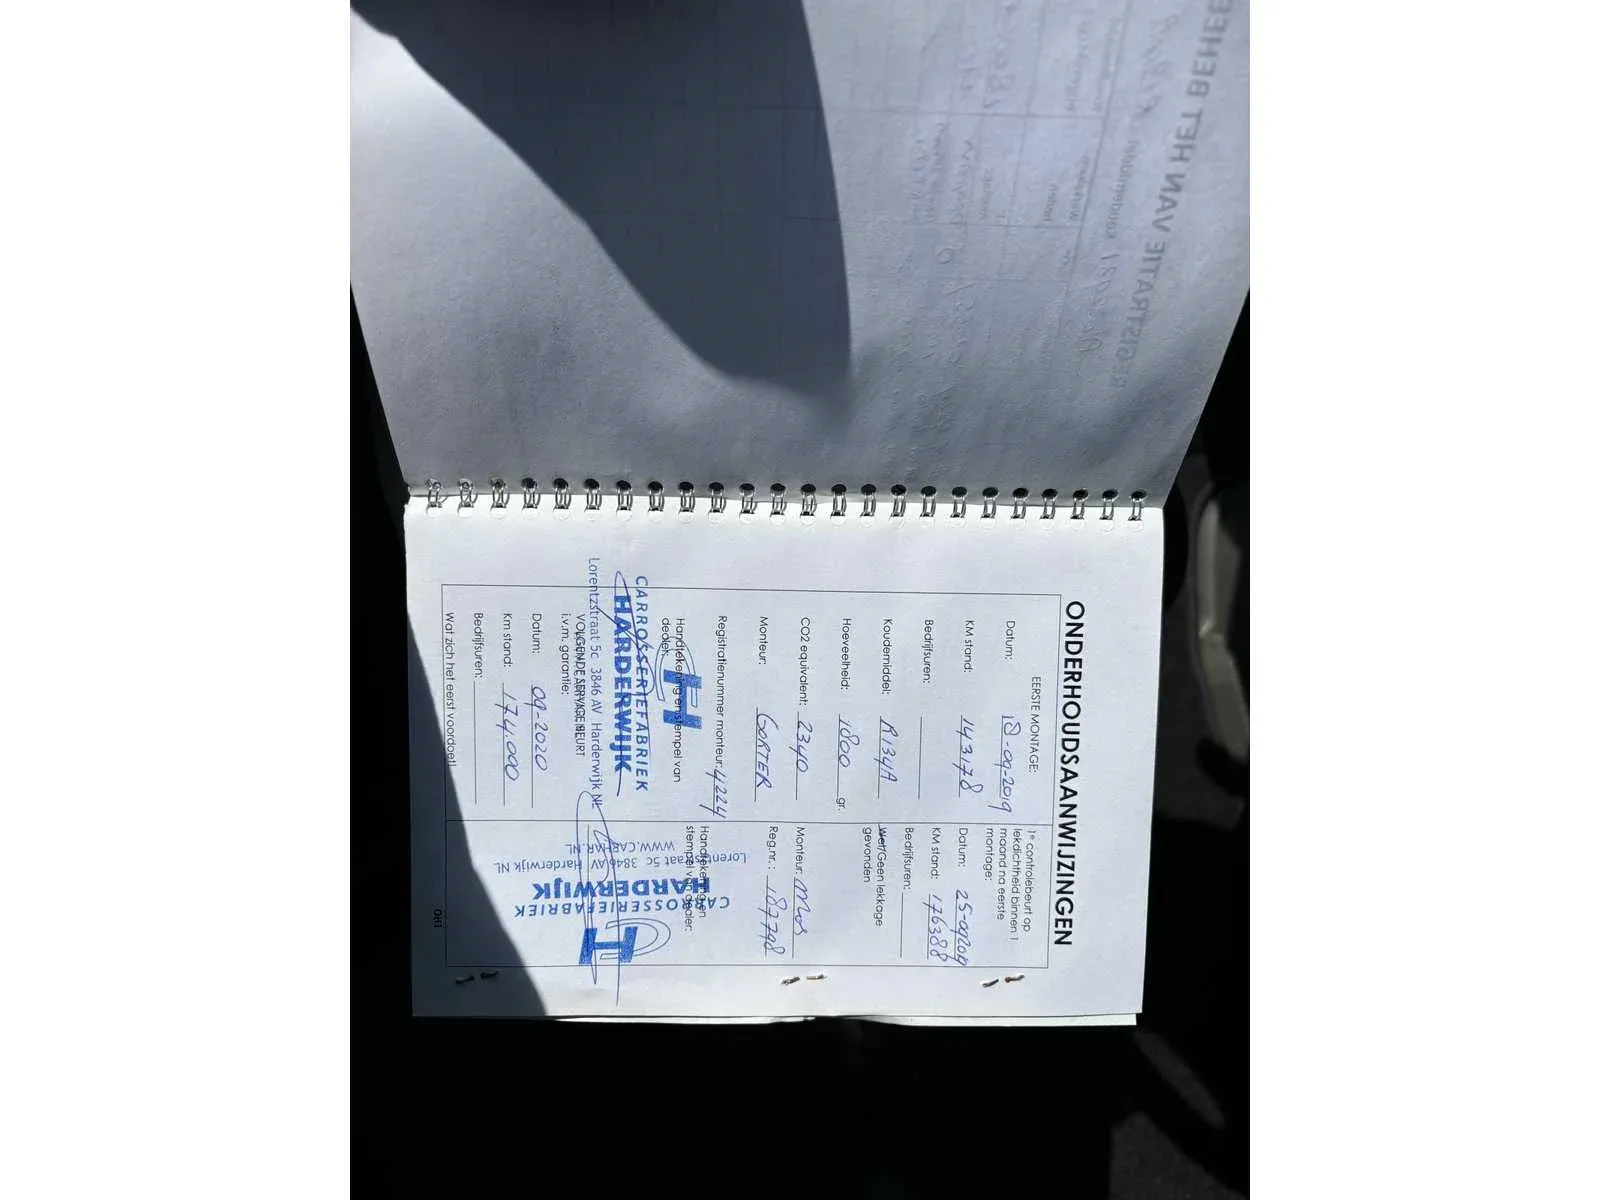 REGISTRATIE VAN HET BEHEE
ONDERHOUDSAANWIJZINGEN
EERSTE MONTAGE:
Datum: 18-09-2019
KM stand: 143178
Bedrijfsuren:
Koudemiddel: R134A
Hoeveelheid: 1800 gr.
CO2 equivalent: 2340
Monteur: GORTER
Registratienummer monteur: 4224
Handtekening en stempel van
dealer:
CARROSSERIEFABRIEK
HARDERWIJK
Lorentzstraat 5c 3846 AV Harderwijk NL
VOLGENDE SERVICEBEURT
i.v.m. garantie:
Datum: 09-2020
Km stand: 174.000
Bedrijfsuren:
Wat zich het eerst voordoet!
1e controlebeurt op
lekdichtheid binnen 1
maand na eerste
montage:
Datum:
KM stand: 176388
Bedrijfsuren:
Wel/Geen lekkage
gevonden
Monteur: Mos
Reg.nr.: 187798
Handtekening en
stempel van dealer:
CARROSSERIEFABRIEK
HARDERWIJK
Lorentzstraat 5c 3846 AV Harderwijk NL
WWW.CARHAR.NL